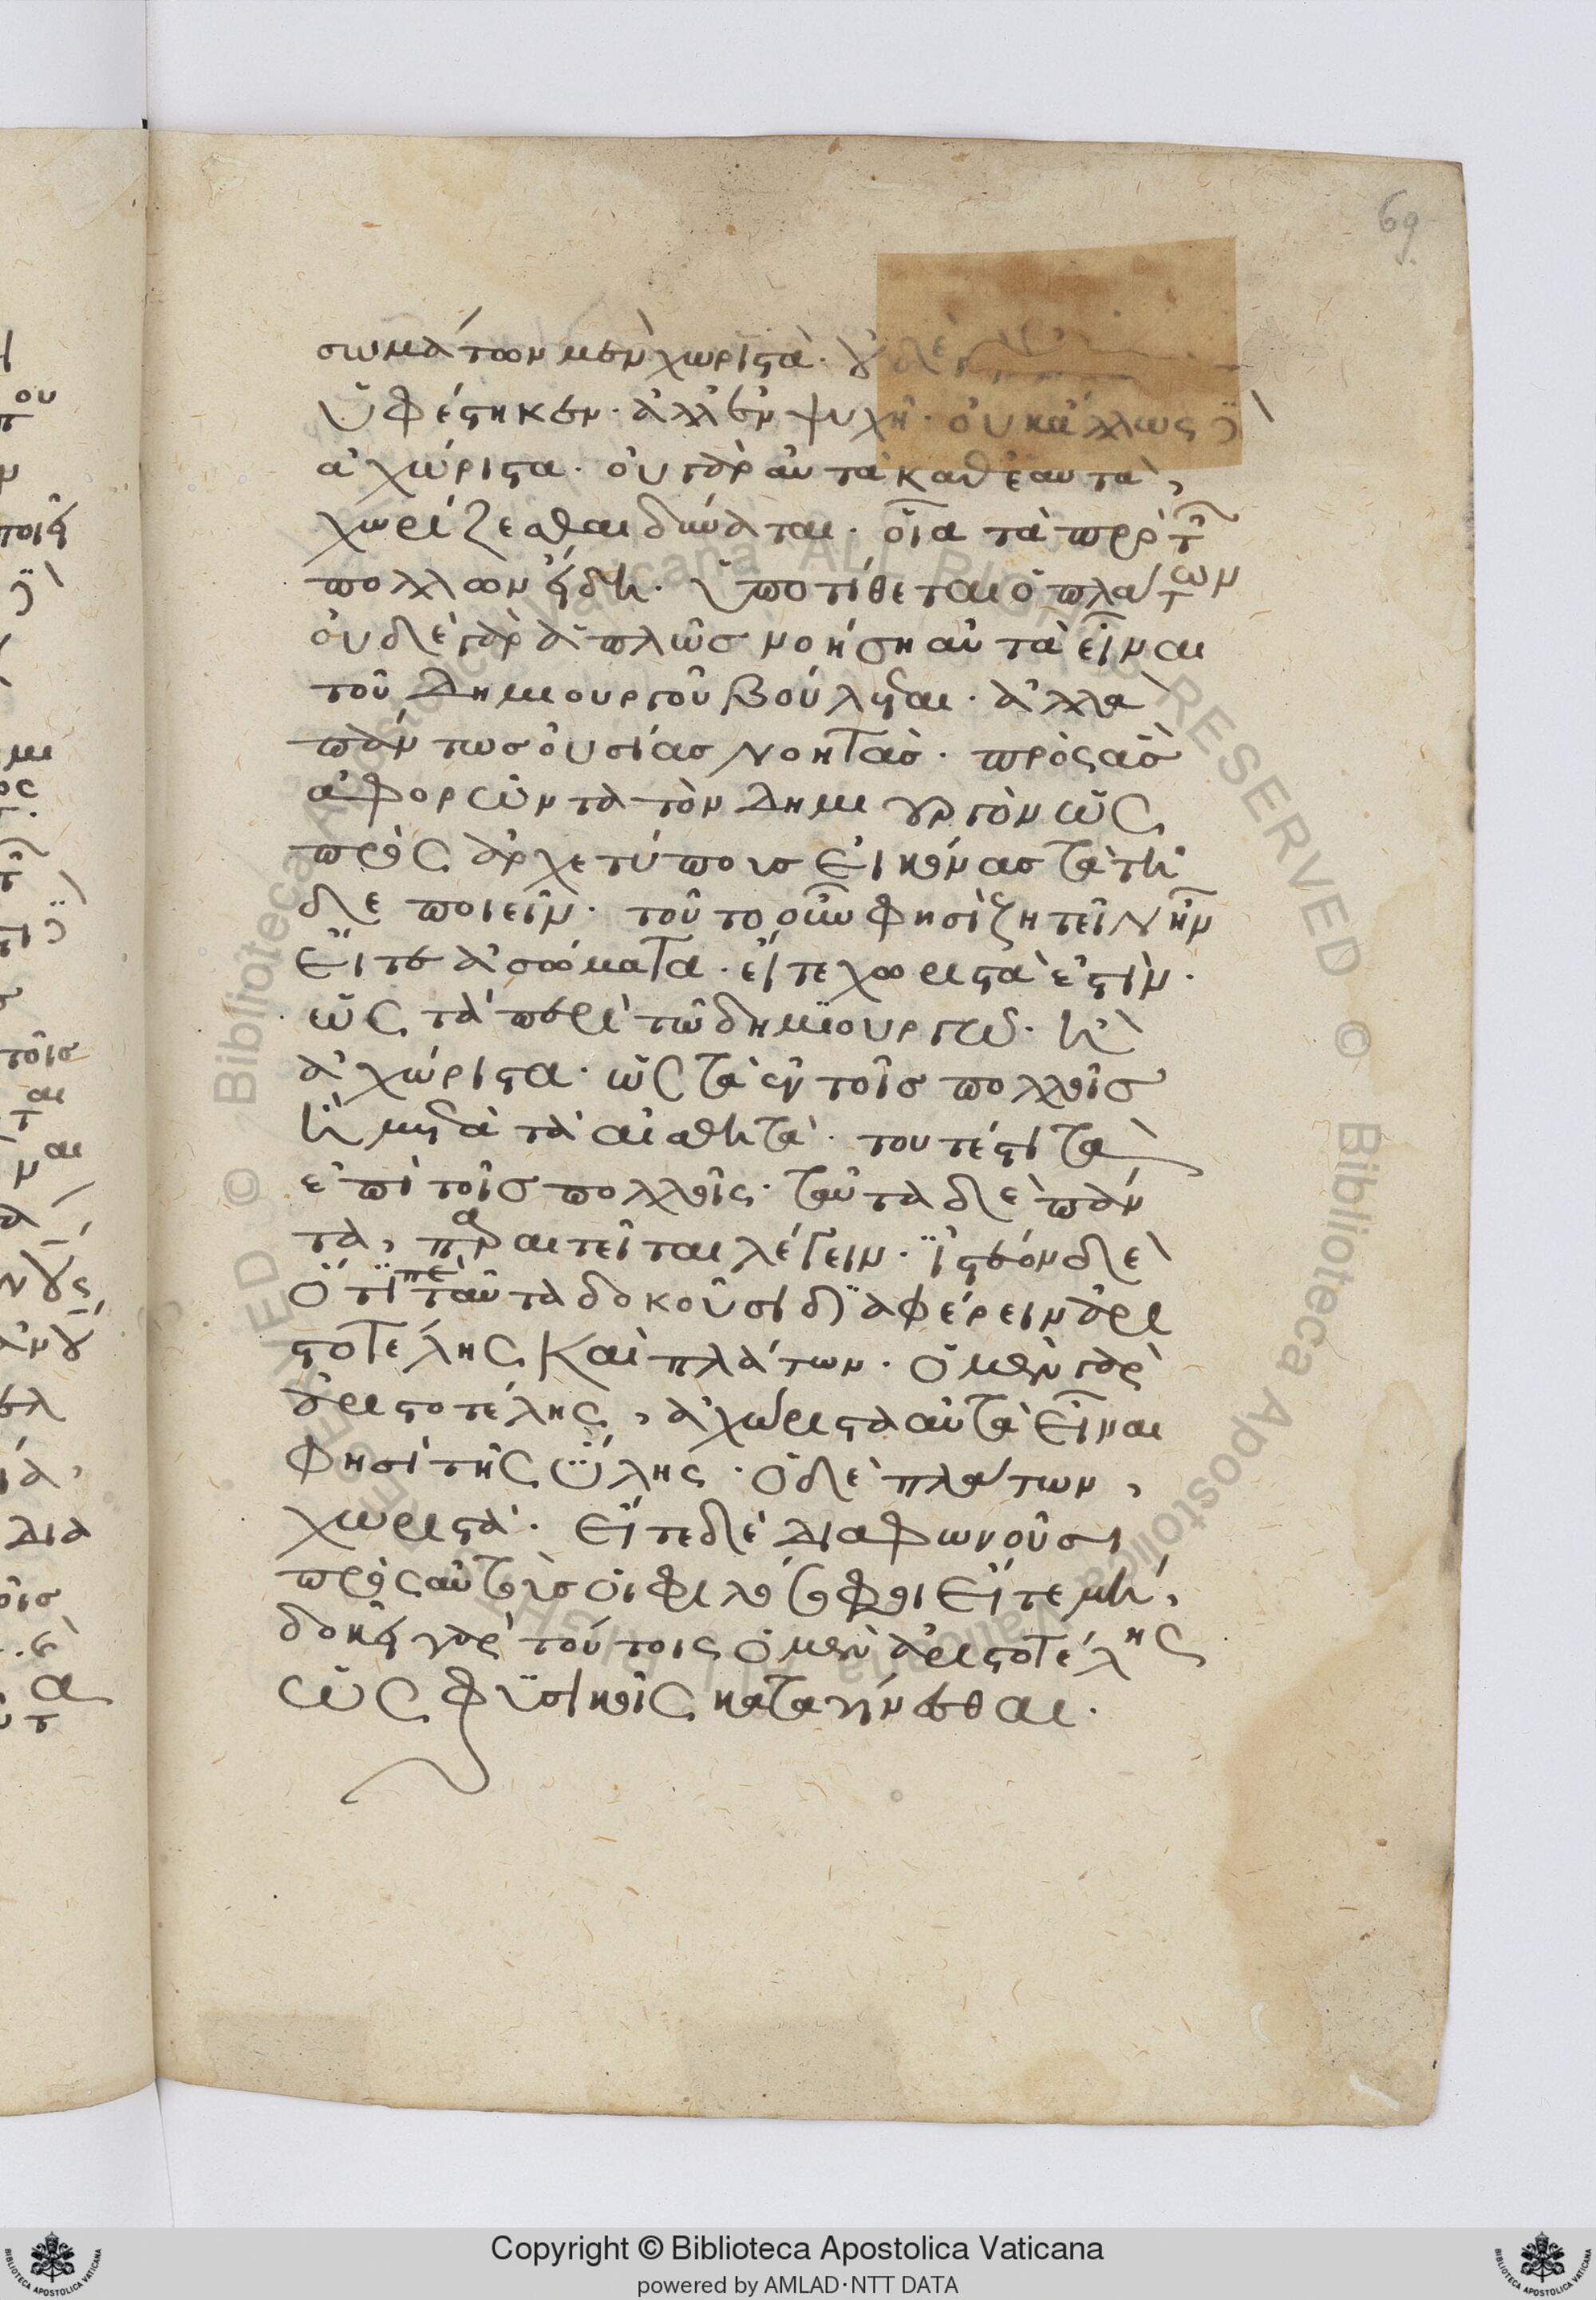 69
σωμάτων μὲν χωριστὰ· οὐδὲ
ὑφέστηκεν· ἀλλ' ἐν ψυχῇ· οὐκ ἄλλως δὲ
ἀχώριστα· οὐ γὰρ αὐτὰ καθ' ἑαυτὰ,
χωρίζεσθαι δύναται· οἷα τὰ πρὸ τῶν
πολλῶν εἴδη· ὑποτίθεται ὁ πλάτων
οὐδὲ γὰρ ἁπλῶσ νοήση αὐτὰ εἶναι
τοῦ Δημιουργοῦ βούλεται· ἀλλὰ
πάντωσ οὐσίασ νοητὰσ· πρὸς ἃσ
ἀφορῶντα τὸν Δημιουργὸν ὡς
πρὸς ἀρχετύποισ εἰκόνασ τὰ τῆ
δε ποιεῖν· τοῦτο οὖν φησὶ ζητεῖν ἡμῖν
εἴτε ἀσώματα· εἴτε χωριστὰ ἐστὶν·
ὡς τὰ περὶ τῶ δημϊουργῶ· καὶ
ἀχώριστα· ὡς τὰ ἐν τοῖσ πολλοῖσ
καὶ μετὰ τὰ αἰσθητὰ· τουτέστι τὰ
ἐπὶ τοῖσ πολλοῖς· ταῦτα δὲ πάν
τα, παραιτεῖται λέγειν· ϊστέον δὲ
ὅτι περὶ ταῦτα δοκοῦσι δϊαφέρειν ἀρι
στοτέλης καὶ πλάτων· ὁ μὲν γὰρ
ἀριστοτέλης, ἀχώριστα αὐτὰ εἶναι
φησὶ τῆς ὕλης· ὁ δὲ πλάτων,
χωριστὰ· εἴτε δὲ Διαφωνοῦσι
πρὸς αὐτοὺσ οἱ φιλόσοφοι εἴτε μὴ,
δοκεῖ γὰρ τούτοις ὁ μὲν ἀριστοτέλης
ὡς φϋσικοῖς κατατείνεσθαι·
Copyright © Biblioteca Apostolica Vaticana
powered by AMLAD·NTT DATA